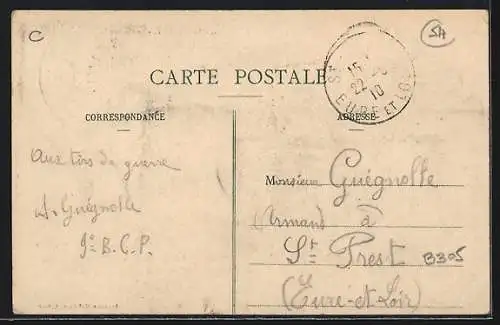 C
SA
CARTE POSTALE
EURE ET LOIR
15
22
10
CORRESPONDANCE
ADRESSE
Aux tirs de guerre
A. Guégnolle
9e B.C.P.
Monsieur Guégnolle
(Armand) à
St Prest
B305
(Eure-et-Loir)